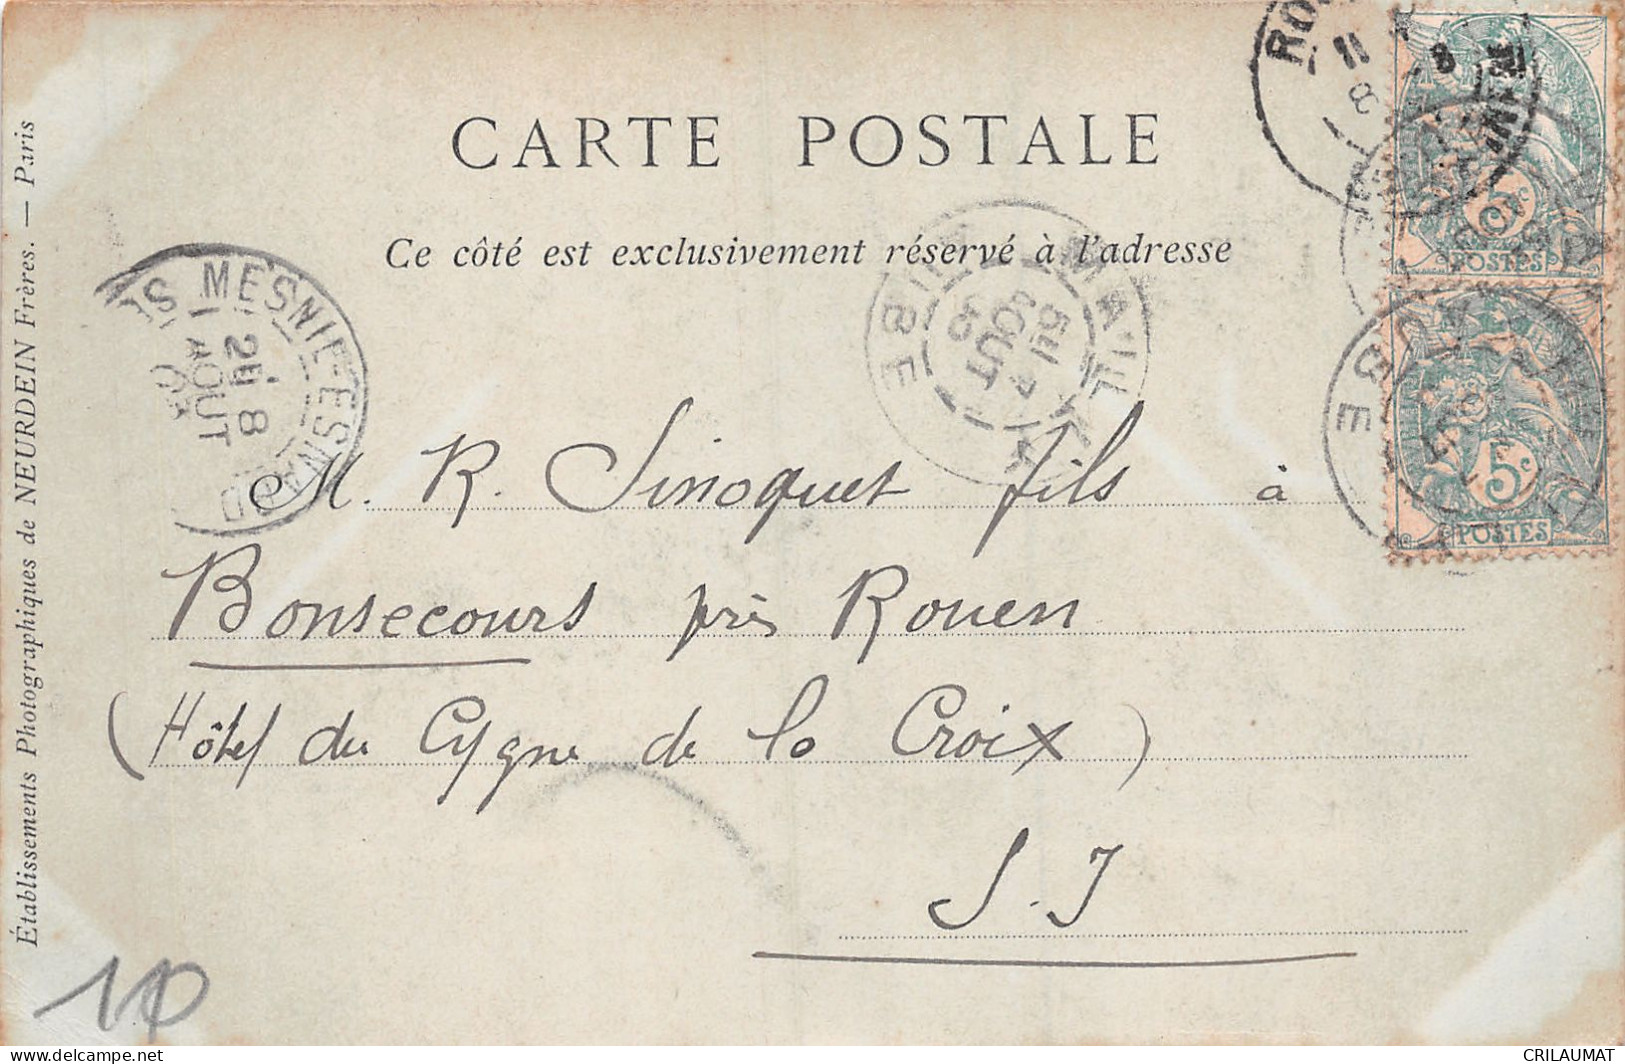 CARTE POSTALE
Ce côté est exclusivement réservé à l'adresse
M. R. Sinoquet fils à
Bonsecours près Rouen
(Hôtel du Cygne de la Croix)
S. I
Établissements Photographiques de NEURDEIN Frères. — Paris
MESNIL-ESNARD
2E 8
AOUT
5c
POSTES
5c
POSTES
delcampe.net
CRILAUMAT